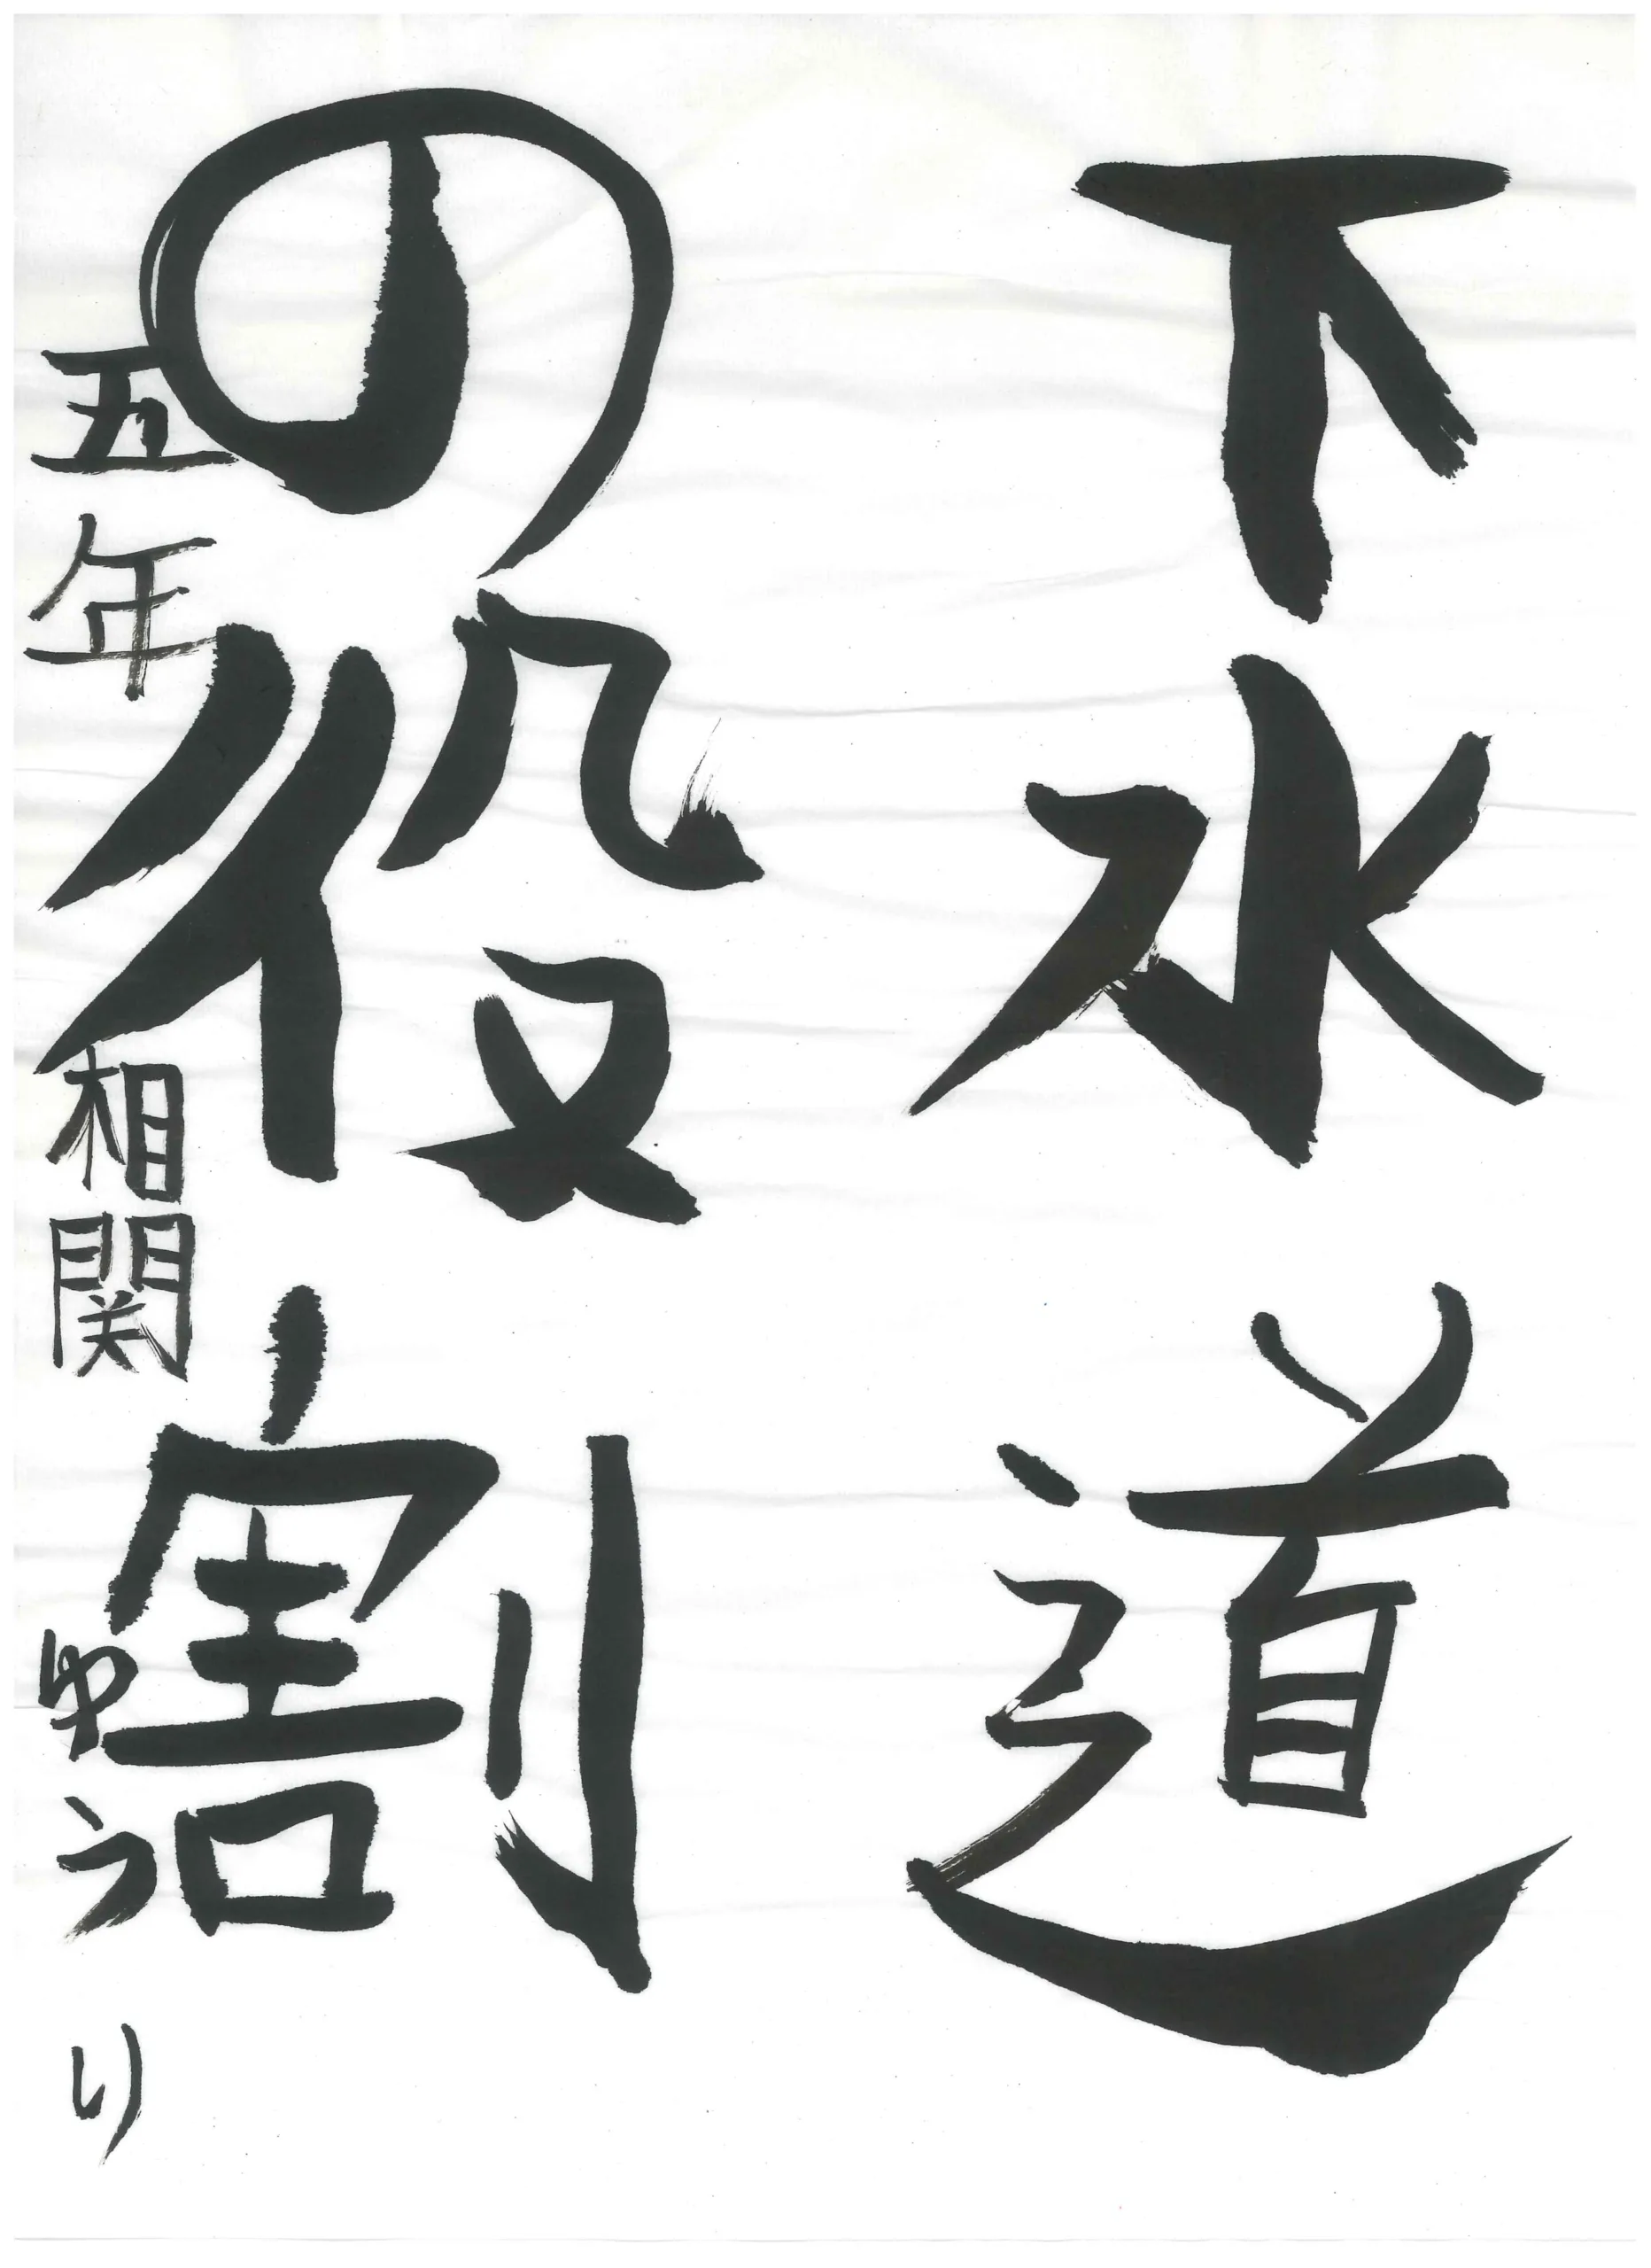 下水道
の役割
五年 相関 ゆうり